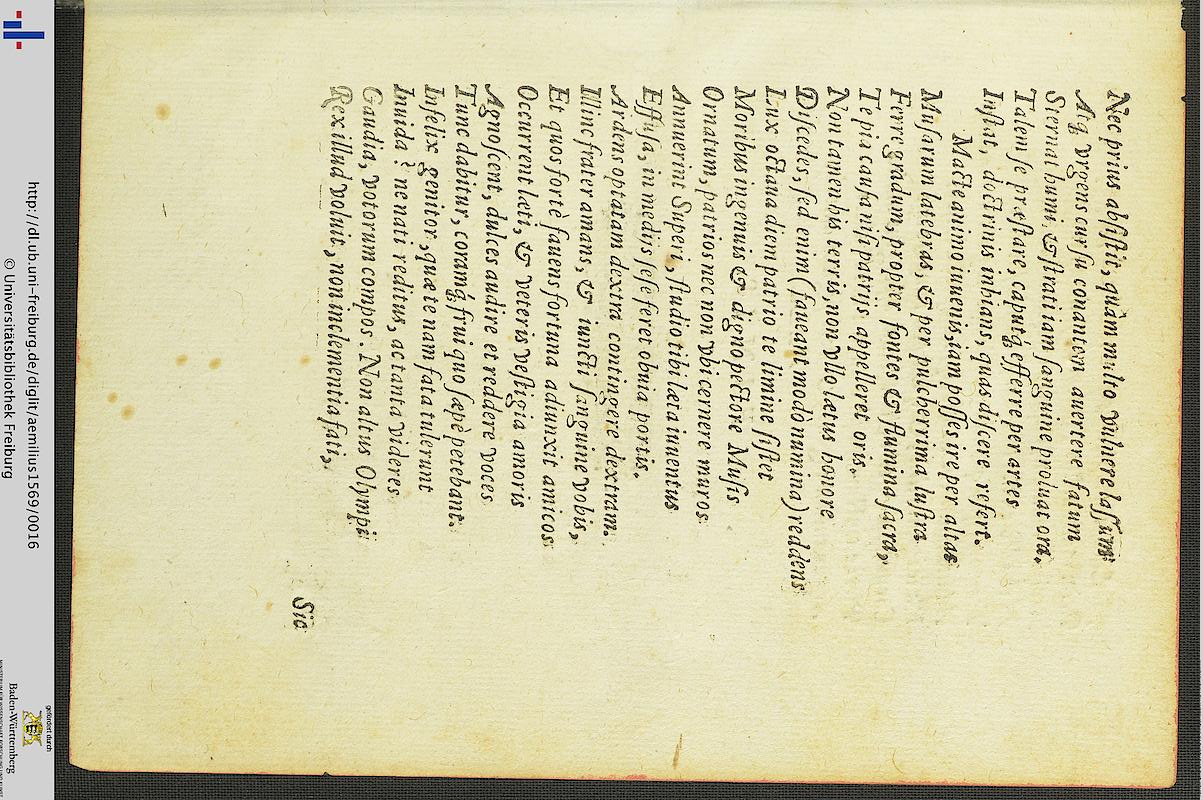 Nec prius absistit, quàm multo vulnere lassum
Atq́; vrgens cursu conantem auertere fatum
Sternat humi, & strati iam sanguine proluat ora.
Talem se præstare, caputq́; efferre per artes
Instat, doctrinis inhians, quas discere refert.
Macte animo iuuenis, iam posses ire per altas
Musarum latebras, & per pulcherrima lustra
Ferre gradum, propter fontes & flumina sacra,
Te pia causa nisi patrijs appelleret oris.
Non tamen his terris, non vllo lætus honore
Discedes, sed enim (faueant modò numina) reddens
Lux octaua diem patrio te limine sistet
Moribus ingenuis & digno pectore Musis
Ornatum, patrios nec non vbi cernere muros
Annuerint Superi, studio tibi læta iuuentus
Effusa, in medijs sese feret obuia portis.
Ardens optatam dextra contingere dextram.
Illinc frater amans, & iuncti sanguine vobis,
Et quos fortè fauens fortuna adiunxit amicos
Occurrent læti, & veteris vestigia amoris
Agnoscent, dulces audire et reddere voces
Tunc dabitur, coramq́; frui quo sæpè petebant.
Infelix genitor, quæ te nam fata tulerunt
Inuida? ne nati reditus, ac tanta videres
Gaudia, votorum compos. Non altus Olympi
Rex illud voluit, non inclementia fati,
Sic
http://dl.ub.uni-freiburg.de/diglit/aemilius1569/0016
© Universitätsbibliothek Freiburg
gefördert durch
Baden-Württemberg